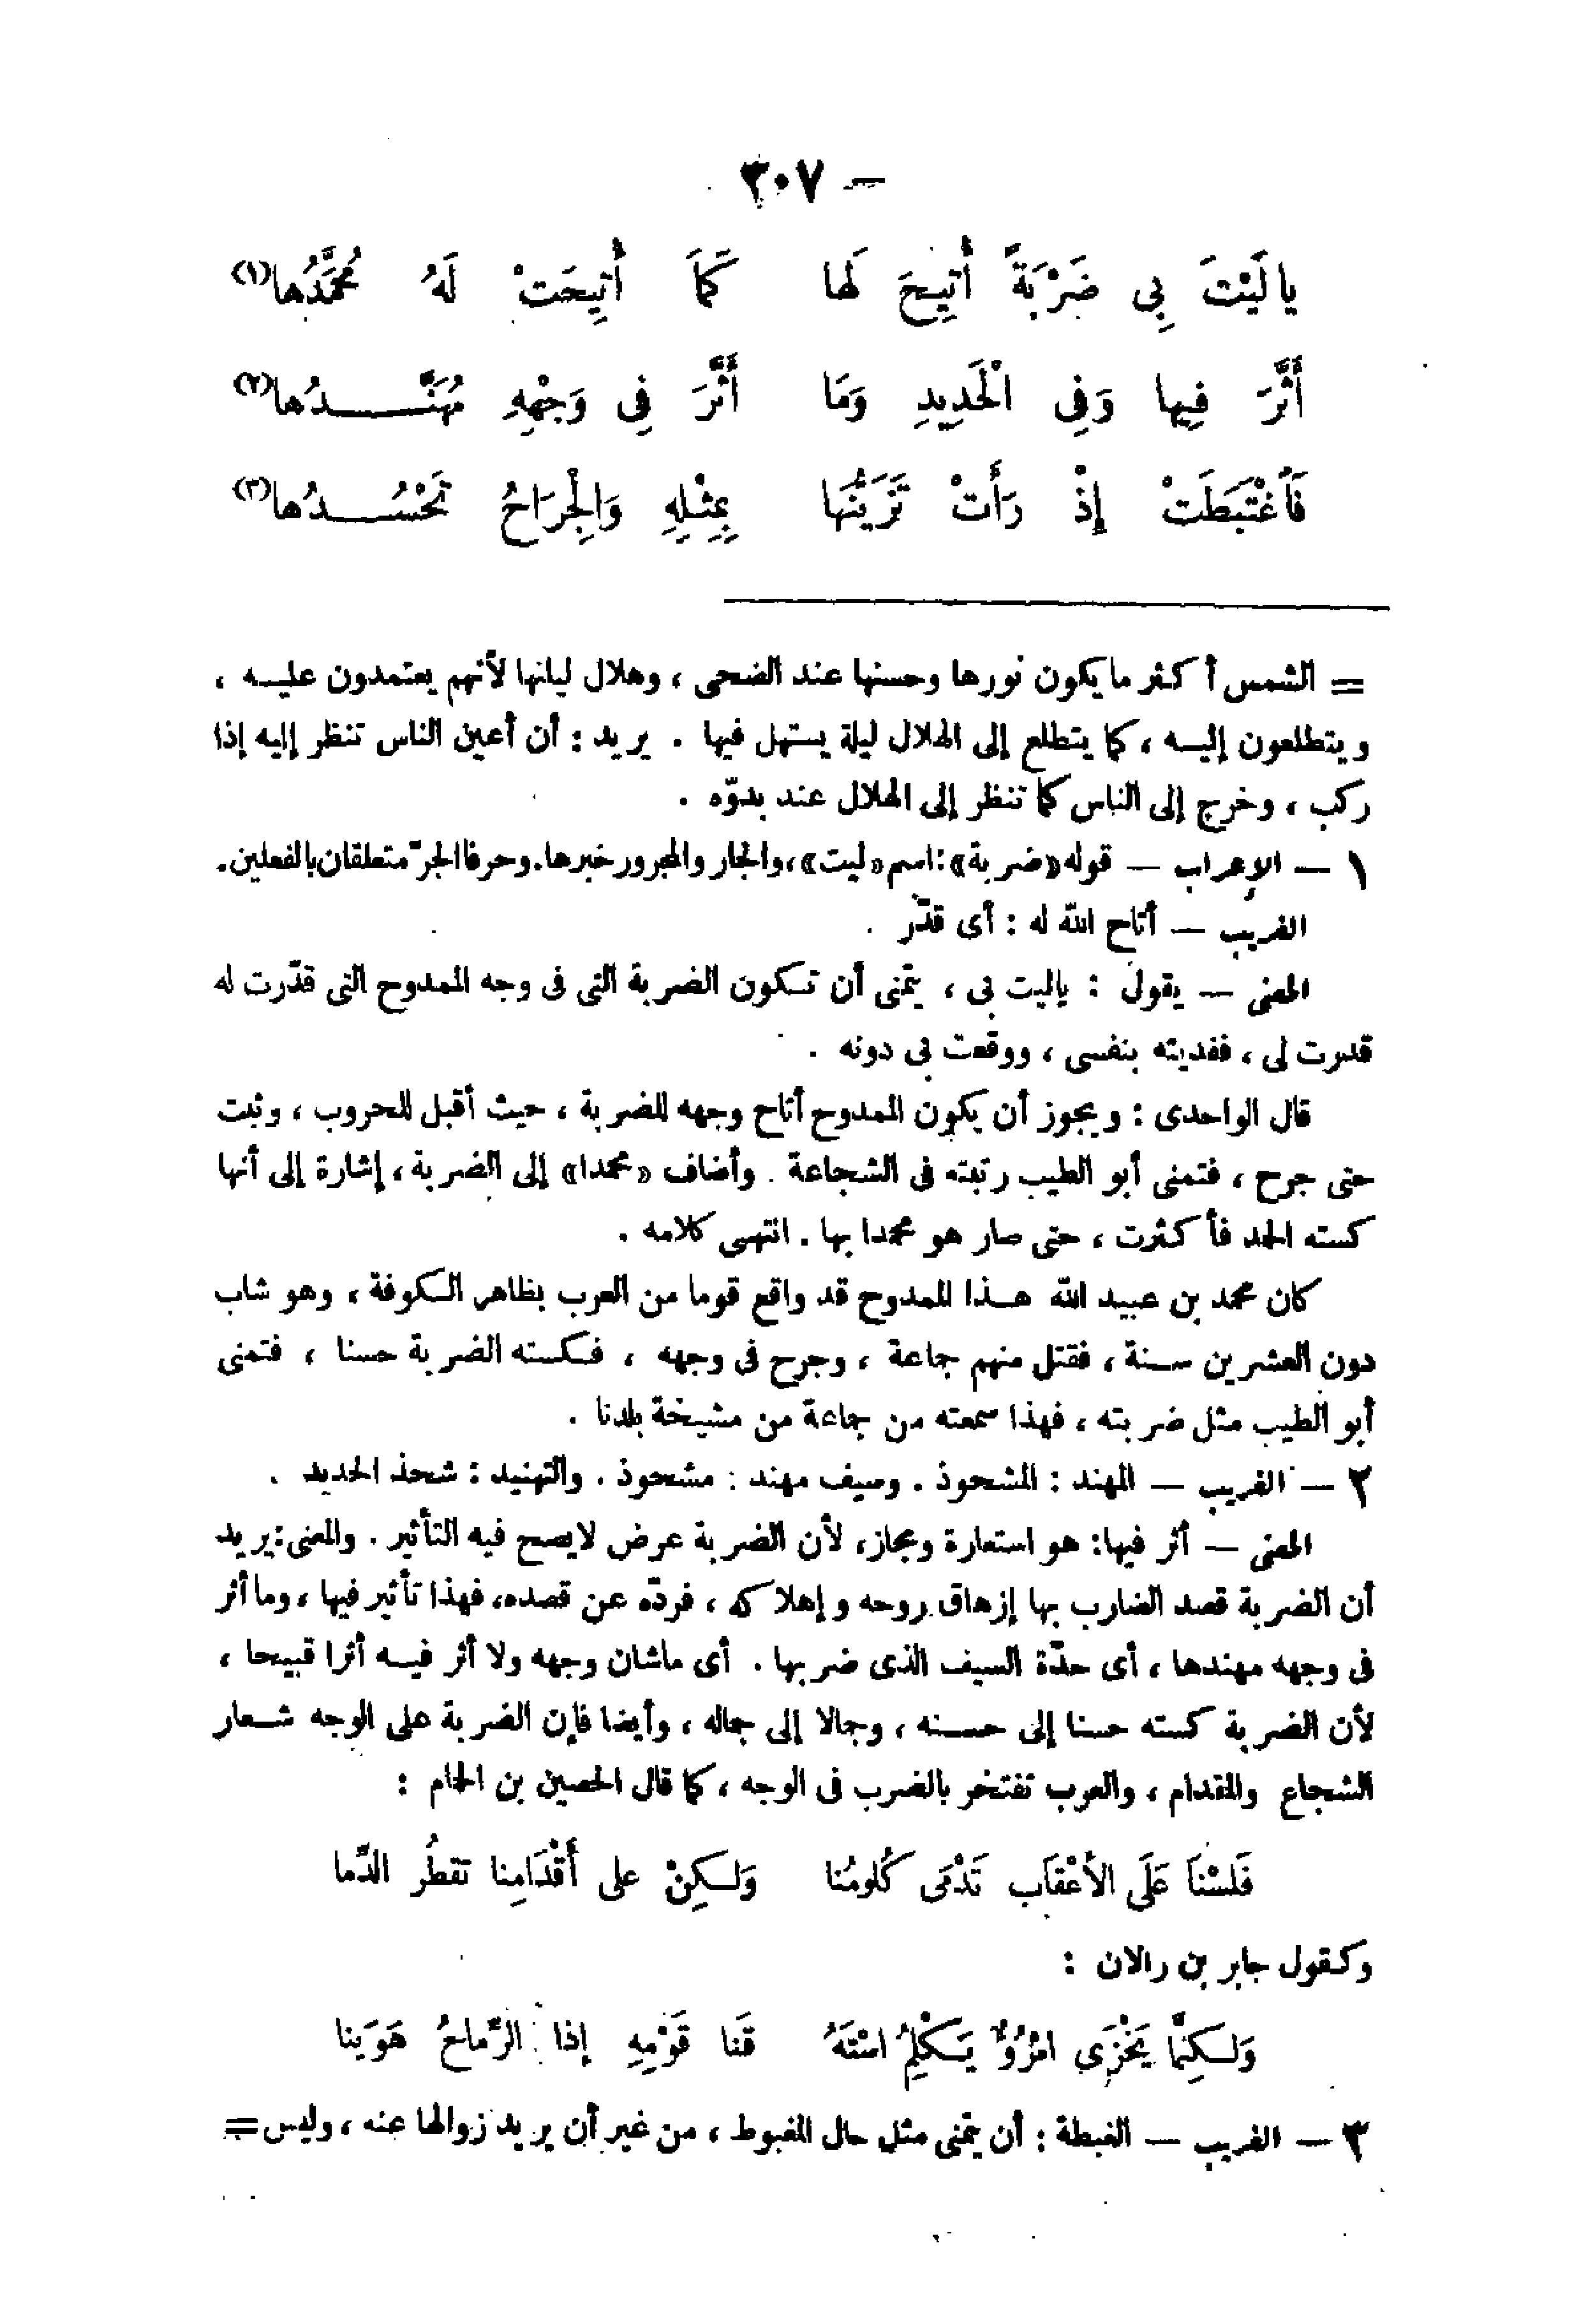 — ٣٠٧
يا لَيْتَ بِى ضَرْبَةً أُتِيحَ لَها كَمَا أُتِيحَتْ لَهُ مُحَمَّدُها(١)
أَثَّرَ فِيها وَفِى الْحَدِيدِ وَمَا أَثَّرَ فِى وَجْهِهِ مُهَنَّدُها(٢)
فَاغْتَبَطَتْ إِذْ رَأَتْ تَزَيُّنَهَا بِمِثْلِهِ وَالْجِرَاحُ تَحْسُدُها(٣)
= الشمس أكثر ما يكون نورها وحسنها عند الضحى ، وهلال ليلتها لأنهم يعتمدون عليه ،
ويتطلعون إليه ، كما يتطلع إلى الهلال ليلة يستهل فيها . يريد : أن أعين الناس تنظر إليه إذا
ركب ، وخرج إلى الناس كما تنظر إلى الهلال عند بدوّه .
١ — الإعراب — قوله «ضربة» : اسم «ليت» ، والجار والمجرور خبرها. وحرفا الجرّ متعلقان بالفعلين.
الغريب — أتاح الله له : أى قدّر .
المعنى — يقول : ياليت بى ، يتمنى أن تكون الضربة التى فى وجه الممدوح التى قدّرت له
قدرت لى ، ففديته بنفسى ، ووقعت بى دونه .
قال الواحدى : ويجوز أن يكون الممدوح أتاح وجهه للضربة ، حيث أقبل للحروب ، وثبت
حتى جرح ، فتمنى أبو الطيب رتبته فى الشجاعة . وأضاف «محمدا» إلى الضربة ، إشارة إلى أنها
كسته الحمد فأكثرت ، حتى صار هو محمدا بها . انتهى كلامه .
كان محمد بن عبيد الله هذا الممدوح قد واقع قوما من العرب بظاهر الكوفة ، وهو شاب
دون العشرين سنة ، فقتل منهم جماعة ، وجرح فى وجهه ، فكسته الضربة حسنا ، فتمنى
أبو الطيب مثل ضربته ، فهذا سمعته من جماعة من مشيخة بلدنا .
٢ — الغريب — المهند : المشحوذ . وسيف مهند : مشحوذ . والتهنيد : شحذ الحديد .
المعنى — أثر فيها: هو استعارة ومجاز، لأن الضربة عرض لايصح فيه التأثير . والمعنى: يريد
أن الضربة قصد الضارب بها إزهاق روحه وإهلاكه ، فردّه عن قصده، فهذا تأثير فيها ، وما أثر
فى وجهه مهندها ، أى حدّة السيف الذى ضربها . أى ماشان وجهه ولا أثر فيه أثرا قبيحا ،
لأن الضربة كسته حسنا إلى حسنه ، وجمالا إلى جماله ، وأيضا فإن الضربة على الوجه شعار
الشجاع والمقدام ، والعرب تفتخر بالضرب فى الوجه ، كما قال الحصين بن الحمام :
فَلَسْنَا عَلَى الأَعْقَاب تَدْمَى كُلومُنا وَلكِنْ على أَقْدَامِنا تقطُر الدَّما
وكقول جابر بن رالان :
وَلكِنَّما يَخْزَى امْرُؤٌ يَكْلِمُ اسْتَهُ قَنا قَوْمِهِ إذا الرِّماحُ هَوَينا
٣ — الغريب — الغبطة : أن يتمنى مثل حال المغبوط ، من غير أن يريد زوالها عنه ، وليس =